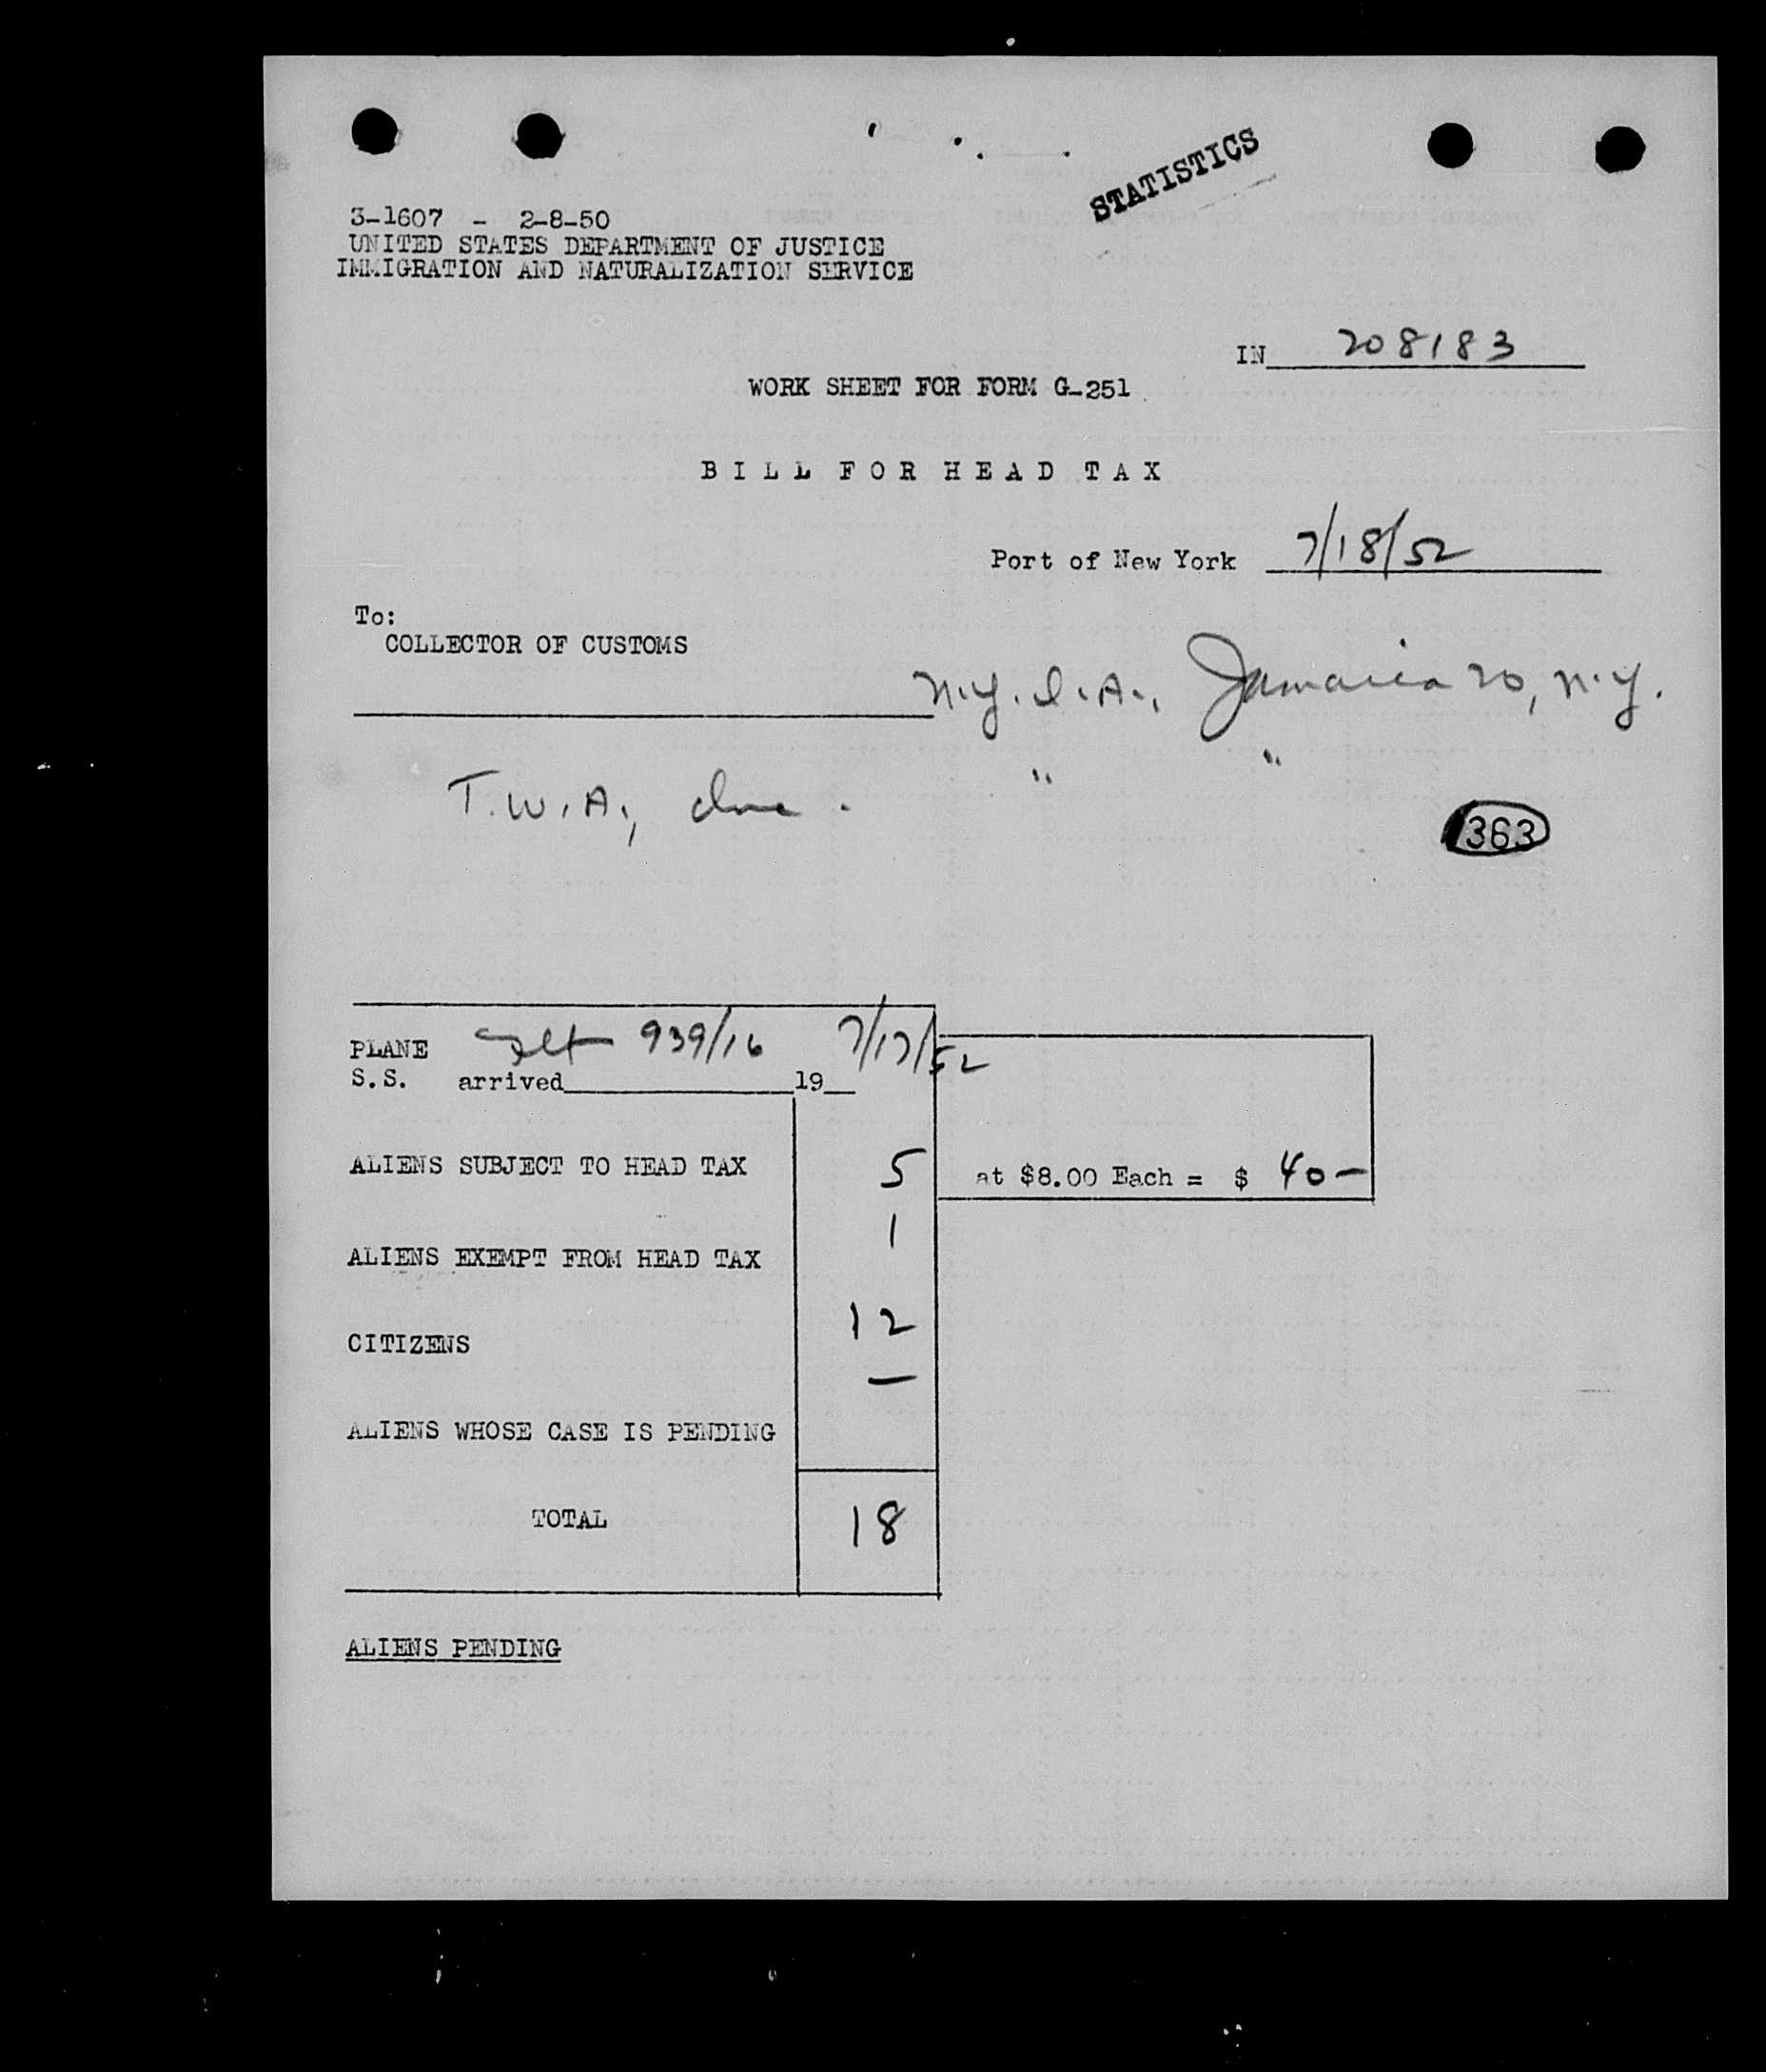 STATISTICS
3-1607 - 2-8-50
UNITED STATES DEPARTMENT OF JUSTICE
IMMIGRATION AND NATURALIZATION SERVICE
IN 208183
WORK SHEET FOR FORM G-251
BILL FOR HEAD TAX
Port of New York 7/18/52
To:
COLLECTOR OF CUSTOMS
N.Y. I.A., Jamaica 20, N.Y.
T.W.A., Inc. " "
363
PLANE Flt 939/16 7/17/52
S.S. arrived 19
ALIENS SUBJECT TO HEAD TAX 5 at $8.00 Each = $ 40-
ALIENS EXEMPT FROM HEAD TAX 1
CITIZENS 12
ALIENS WHOSE CASE IS PENDING —
TOTAL 18
ALIENS PENDING